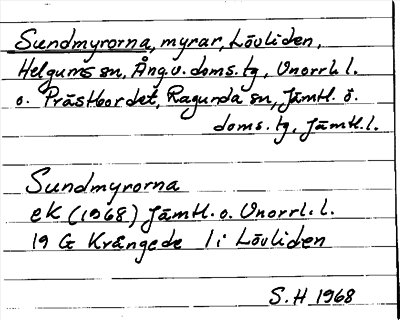 Sundmyrorna, myrar, Lövliden,
Helgums sn, Ång.v. doms. tg, Vnorrl. l.
o. Prästbordet, Ragunda sn, Jämtl. ö.
doms. tg, Jämtl. l.
Sundmyrorna
eK (1968) Jämtl. o. Vnorrl. l.
19 G Krångede 1 i Lövliden
S.H 1968